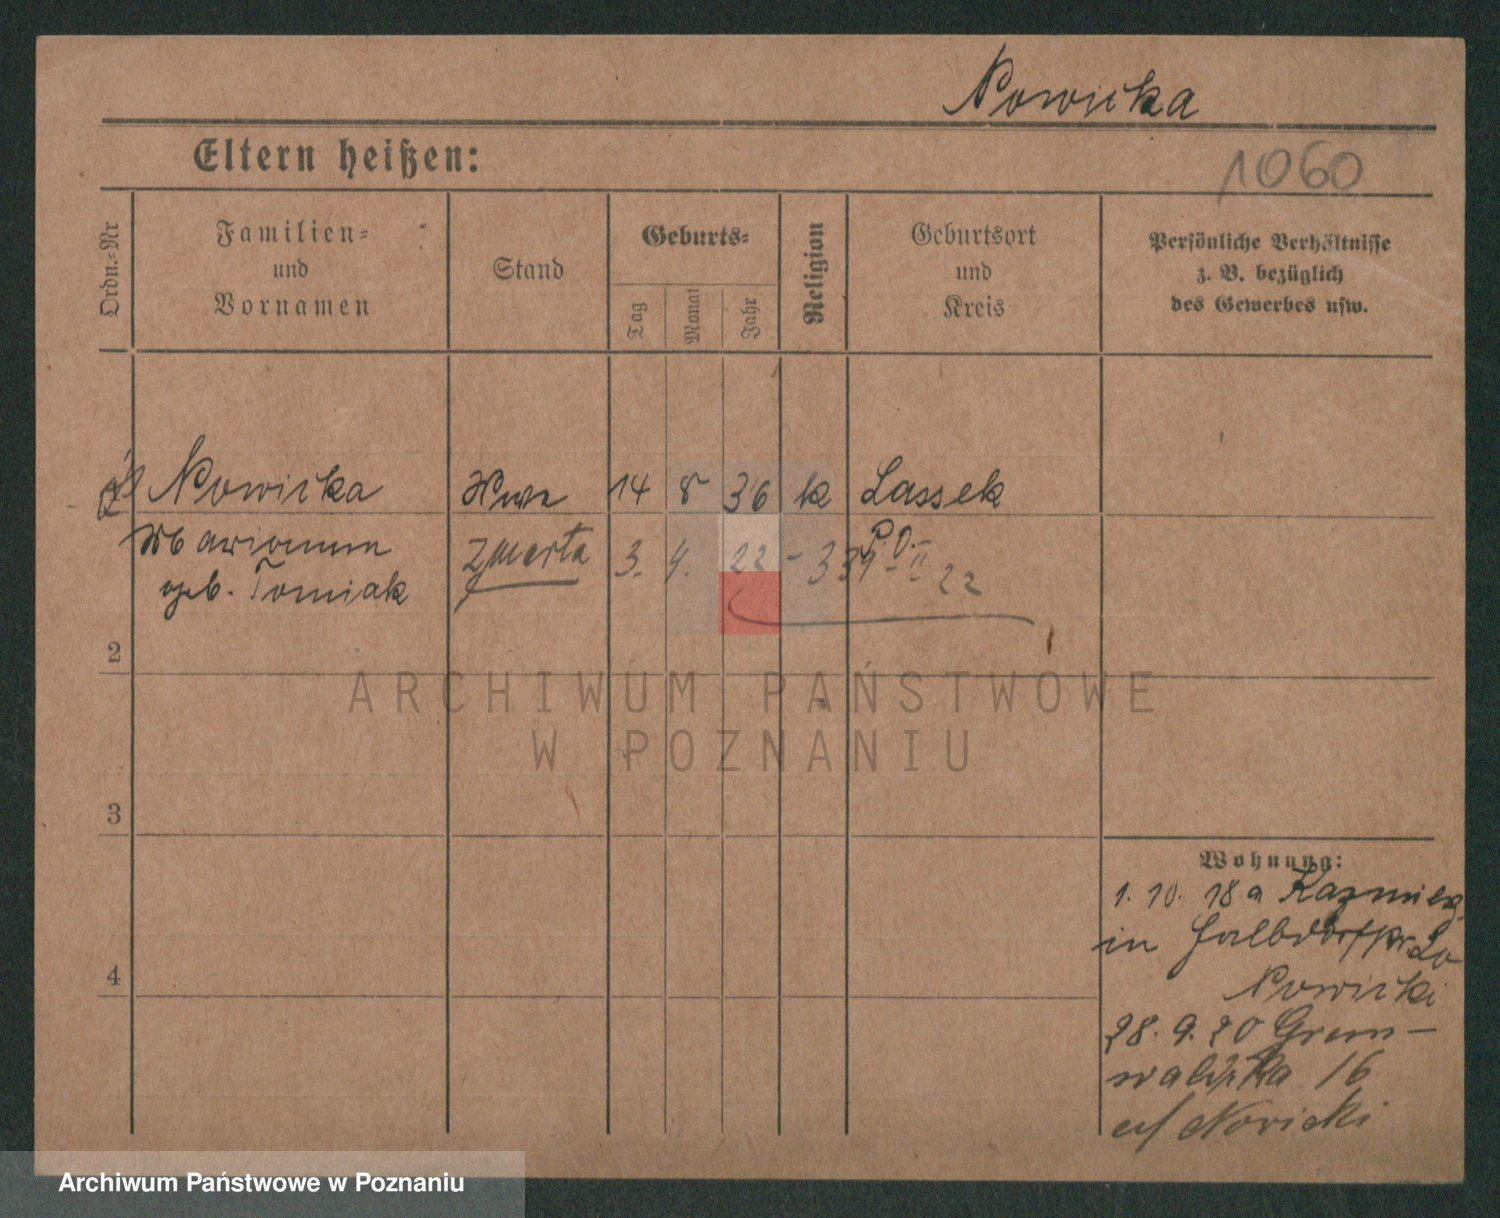 Nowicka
Eltern heißen:
1060
Ordn.-Nr
Familien-
und
Vornamen
Stand
Geburts-
Tag
Monat
Jahr
Religion
Geburtsort
und
Kreis
Persönliche Verhältnisse
z. B. bezüglich
des Gewerbes usw.
Nowicka Wwe 14 8 36 k Lassek
Marianna
geb. Tomiak
zmarła 3. 4. 22 - 331 P.O. II 22
2
3
4
ARCHIWUM PAŃSTWOWE
W POZNANIU
Wohnung:
1. 10. 18 a Kazmierz
in Halbdorfstr.
Nowicki
28. 9. 20 Grun-
waldzka 16
Nowicki
Archiwum Państwowe w Poznaniu